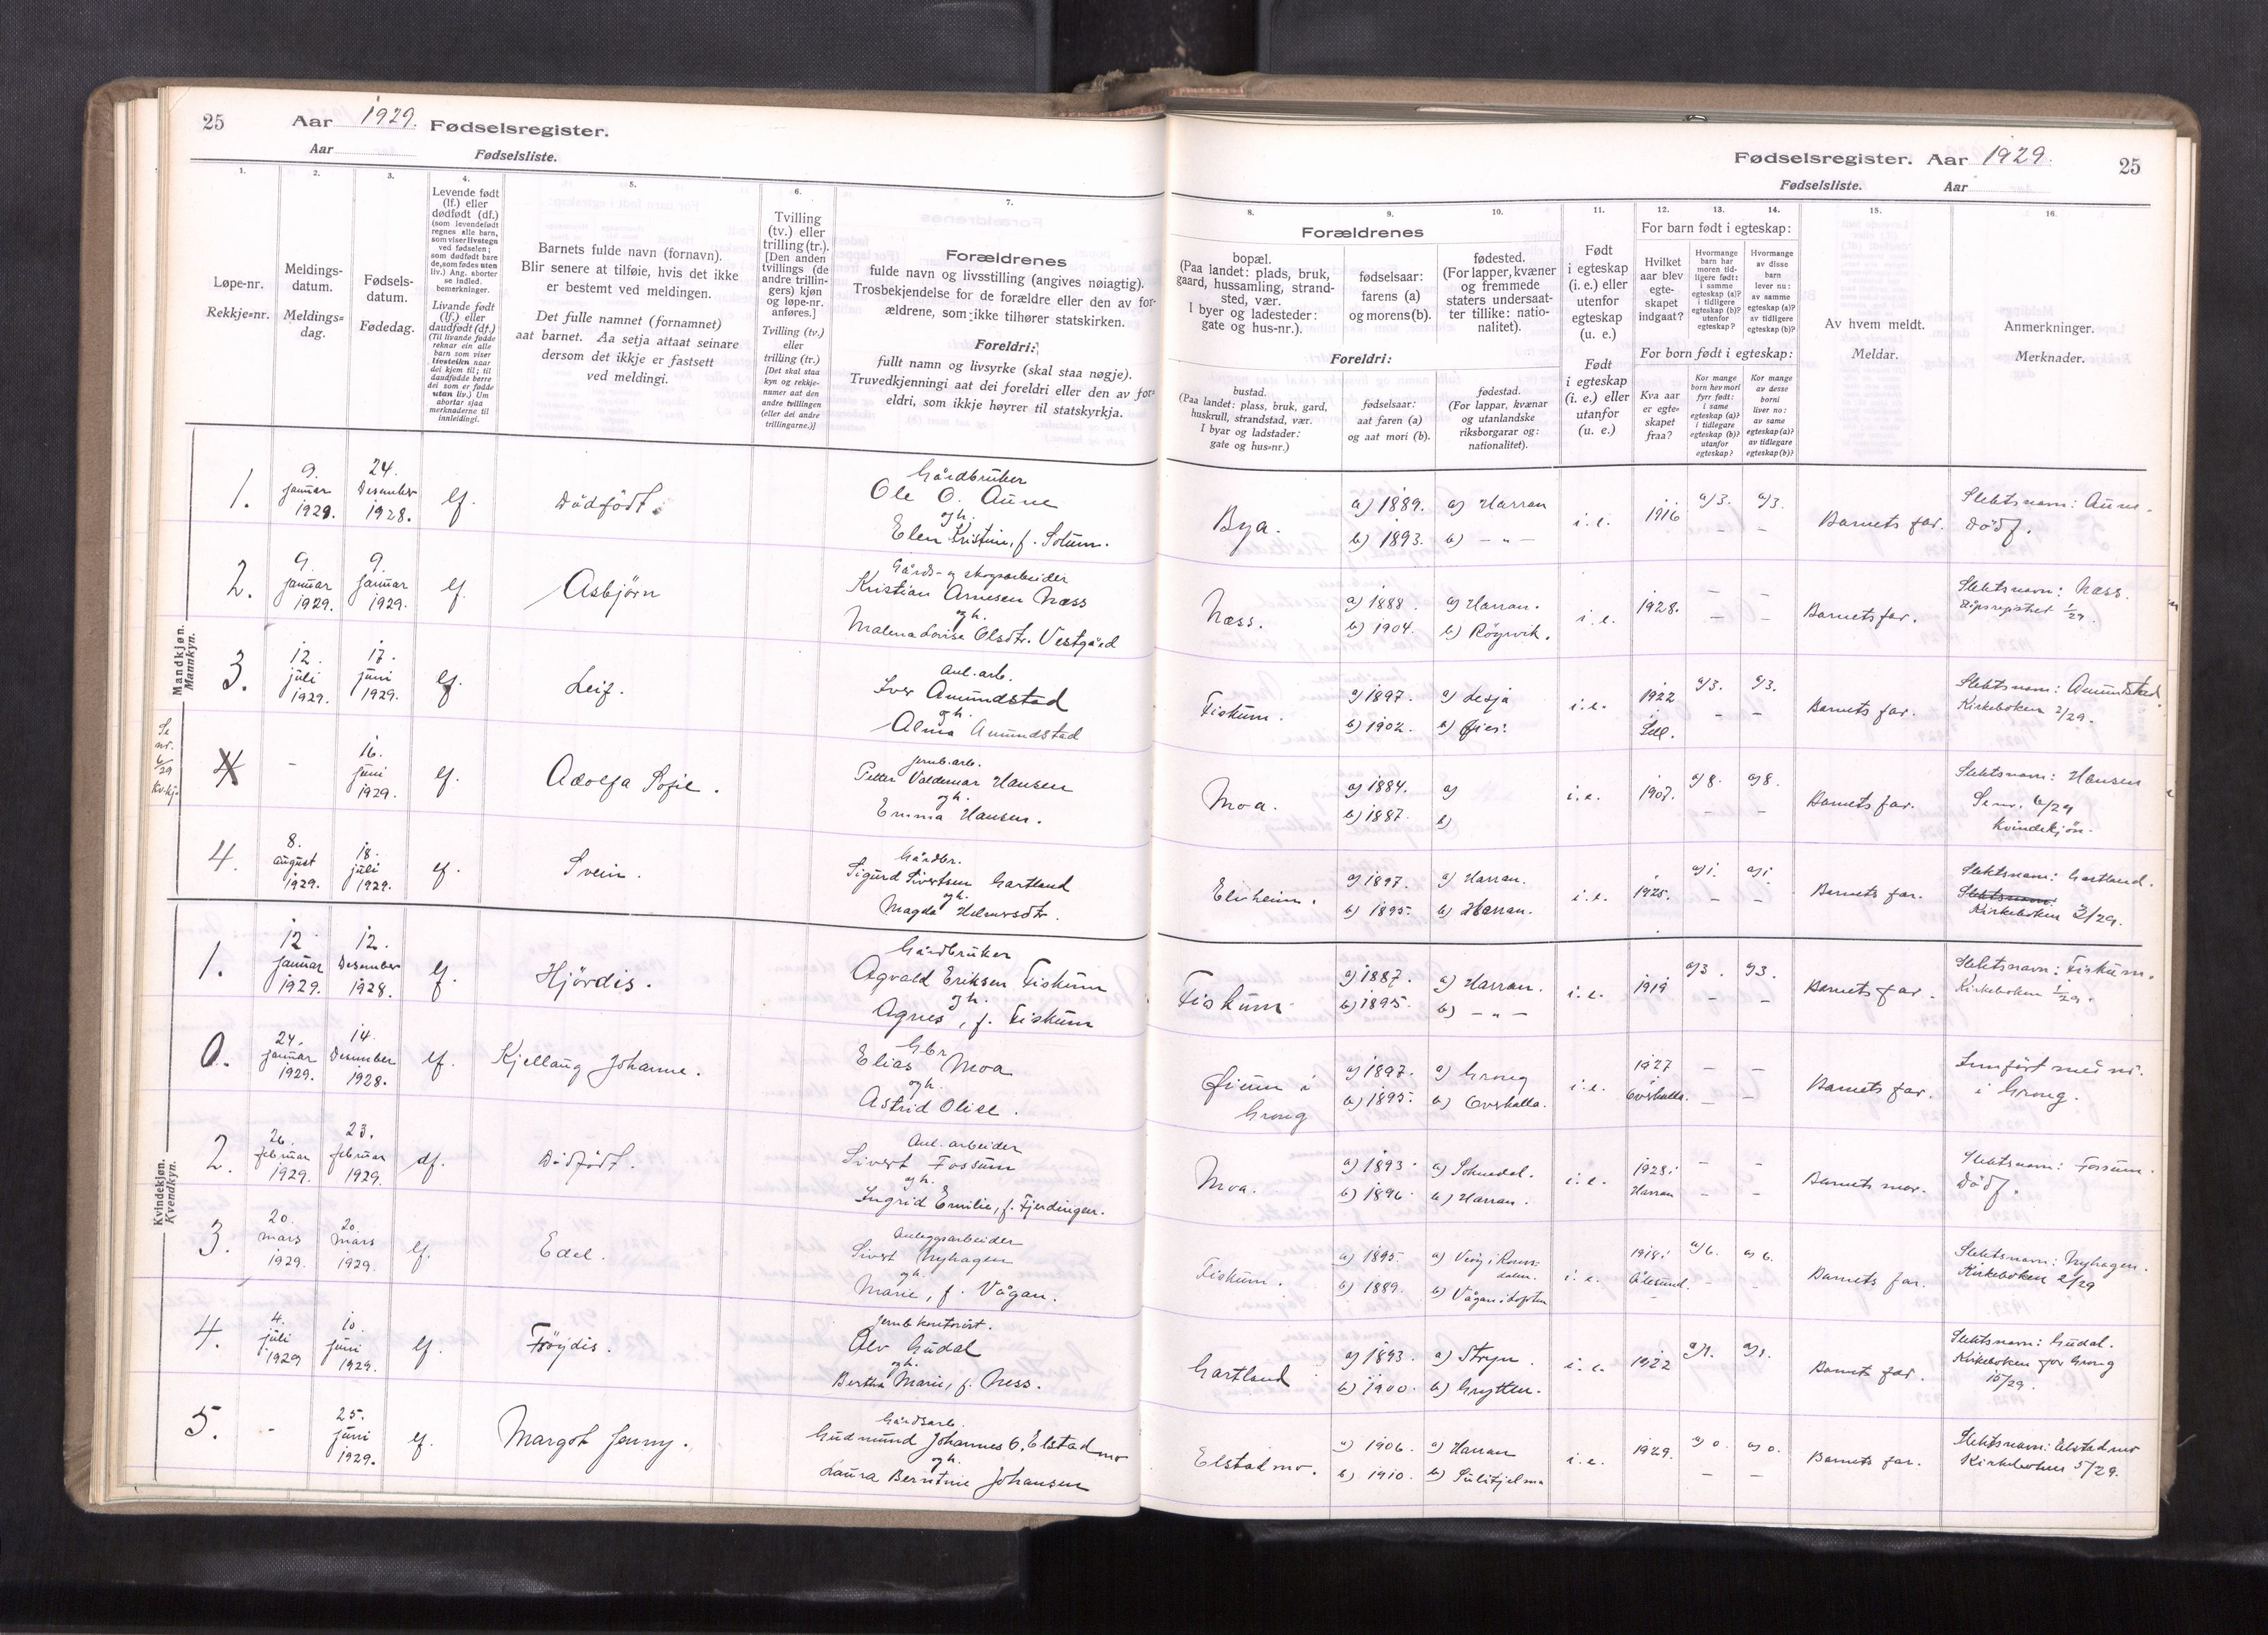 25
Aar 1929. Fødselsregister.
Aar Fødselsliste.
1.
2.
3.
4.
5.
6.
7.
Løpe-nr.
Rekkje=nr.
Meldings-
datum.
Meldings=
dag.
Fødsels-
datum.
Fødedag.
Levende født
(lf.) eller
dødfødt (df.)
(som levendefødt
regnes alle barn,
som viser livstegn
ved fødselen;
som dødfødt bare
de, som fødes uten
liv.) Ang. aborter
se indled.
bemerkninger.
Livande født
(lf.) eller
daudfødt (df.)
(Til livande fødde
reknar ein alle
born som viser
livsteikn naar
dei kjem til; til
daudfødde berre
dei som er fødde
utan liv.) Um
abortar sjaa
merknaderne til
innleidingi.
Barnets fulde navn (fornavn).
Blir senere at tilføie, hvis det ikke
er bestemt ved meldingen.
Det fulle namnet (fornamnet)
aat barnet. Aa setja attaat seinare
dersom det ikkje er fastsett
ved meldingi.
Tvilling
(tv.) eller
trilling (tr.).
[Den anden
tvillings (de
andre trillin-
gers) kjøn
og løpe-nr.
anføres.]
Tvilling (tv.)
eller
trilling (tr.)
[Det skal staa
kyn og rekkje-
numer aat den
andre tvillingen
(eller dei andre
trillingarne.)]
Forældrenes
fulde navn og livsstilling (angives nøiagtig).
Trosbekjendelse for de forældre eller den av for-
ældrene, som ikke tilhører statskirken.
Foreldri:
fullt namn og livsyrke (skal staa nøgje).
Truvedkjenningi aat dei foreldri eller den av for-
eldri, som ikkje høyrer til statskyrkja.
Mandkjøn.
Mannkyn.
1.
9.
januar
1929.
24.
Desember
1928.
lf.
Dødfødt.
Gårdbruker
Ole O. Aune
og h.
Elen Kristine, f. Solum.
2.
9.
januar
1929.
9.
januar
1929.
lf.
Asbjørn
Gårds- og skogsarbeider
Kristian Arnesen Næss
og h.
Malena Lovise Olsdtr. Vestgård
3.
12.
juli
1929.
17.
juni
1929.
lf.
Leif.
Anl. arb.
Iver Amundstad
og h.
Alma Amundstad
Se
nr.
6/29
kv.kj.
4
-
16.
juni
1929.
lf.
Adolfa Sofie.
Jernb. arb.
Petter Valdemar Hansen
og h.
Emma Hansen.
4.
8.
august
1929.
18.
juli
1929.
lf.
Svein.
Gårdbr.
Sigurd Sivertsen Gartland
og h.
Magda Helmersdtr.
Kvindekjøn.
Kvendkyn.
1.
12
januar
1929.
12.
Desember
1928.
lf.
Hjördis.
Gårdbruker
Agvald Eriksen Fiskum
og h.
Agnes, f. Fiskum
0.
24.
januar
1929.
14.
Desember
1928.
lf.
Kjellaug Johanne.
Gbr
Elias Moa
og h.
Astrid Olise.
2.
26.
februar
1929.
23.
februar
1929.
df.
Dødfødt.
Anl. arbeider
Sivert Fossum
og h.
Ingrid Emilie, f. Fjerdingen.
3.
20.
mars
1929.
20.
mars
1929.
lf.
Edel.
Anleggsarbeider
Sivert Nyhagen
og h.
Marie, f. Vågan.
4.
4.
juli
1929
10.
juni
1929.
lf.
Frøydis.
Jernb kontorist.
Alv Gudal
og h.
Bertha Marie, f. Ness.
5.
-
25.
juni
1929.
lf.
Margot Jenny.
Gårdsarb.
Gudmund Johannes O. Elstadmo
og h.
Laura Berntine Johansen
Fødselsregister. Aar 1929.
25
Fødselsliste. Aar
8.
9.
10.
11.
12.
13.
14.
15.
16.
Forældrenes
bopæl.
(Paa landet: plads, bruk,
gaard, hussamling, strand-
sted, vær.
I byer og ladesteder:
gate og hus-nr.).
fødselsaar:
farens (a)
og morens (b).
fødested.
(For lapper, kvæner
og fremmede
staters undersaat-
ter tillike: natio-
nalitet).
Foreldri:
bustad.
(Paa landet: plass, bruk, gard,
huskrull, strandstad, vær.
I byar og ladstader:
gate og hus=nr.)
fødselsaar:
aat faren (a)
og aat mori (b).
fødestad.
(For lappar, kvænar
og utanlandske
riksborgarar og:
nationalitet).
Født
i egteskap
(i. e.) eller
utenfor
egteskap
(u. e.)
Født
i egteskap
(i. e.) eller
utanfor
(u. e.)
For barn født i egteskap:
Hvilket
aar blev
egte-
skapet
indgaat?
Hvormange
barn har
moren tid-
ligere født:
i samme
egteskap (a)?
i tidligere
egteskap (b)?
utenfor
egteskap?
Hvormange
av disse
barn
lever nu:
av samme
egteskap (a)?
av tidligere
egteskap (b)?
For born født i egteskap:
Kva aar
er egte=
skapet
fraa?
Kor mange
born hev mori
fyrr født:
i same
egteskap (a)?
i tidlegare
egteskap (b)?
utanfor
egteskap?
Kor mange
av desse
borni
liver no:
av same
egteskap (a)?
av tidlegare
egteskap (b)?
Av hvem meldt.
Meldar.
Anmerkninger.
Merknader.
Bya.
a) 1889.
b) 1893.
a) Harran
b) - " -
i. e.
1916
a/3.
-
a/3.
-
Barnets far.
Slektsnavn: Aune.
Dødf.
Næss.
a) 1888
b) 1904.
a) Harran.
b) Röyrvik.
i. e.
1928.
-
-
-
-
Barnets far.
Slektsnavn: Næss.
Dåpsregistret 1/29
Fiskum.
a) 1897.
b) 1902.
a) Lesja
i. e.
1922
Lill.
a/3.
-
a/3.
-
Barnets far.
Slektsnavn: Amundstad.
Kirkeboken 2/29.
Moa.
a) 1884.
b) 1887.
a)
b)
i. e.
1907.
a/8.
-
a/8.
-
Barnets far.
Slektsnavn: Hansen
Se nr. 6/29
Kvindekjön.
Elisheim.
a) 1897.
b) 1895.
a) Harran.
b) Harran.
i. e.
1925.
a/1.
-
a/1.
-
Barnets far.
Slektsnavn: Gartland.
Slektsnavn:
Kirkeboken 3/29.
Fiskum
a) 1887.
b) 1895
a) Harran.
b) - " -
i. e.
1919
a/3.
-
a/3.
-
Barnets far.
Slektsnavn: Fiskum.
Kirkeboken 1/29.
Øium i
Grong
a) 1897.
b) 1895.
a) Grong
b) Overhalla.
i. e.
1927
Overhalla.
-
-
-
-
Barnets far.
Innført med nr.
i Grong.
Moa.
a) 1893.
b) 1896.
a) Soknedal.
b) Harran.
i. e.
1928.
Harran
-
-
-
-
Barnets mor.
Slektsnavn: Fossum.
Dødf.
Fiskum.
a) 1895
b) 1889.
a) Veöy i Roms-
dalen.
b) Vågan i Lofoten
i. e.
1918.
Ålesund.
a/6.
-
a 6.
-
Barnets far.
Slektsnavn: Nyhagen.
Kirkeboken 2/29
Gartland
a) 1893.
b) 1900.
a) Stryn.
b) Grytten.
i. e.
1922
a/1.
a/1.
Barnets far.
Slektsnavn: Gudal.
Kirkeboken for Grong
15/29.
Elstadmo.
a) 1906.
b) 1910.
a) Harran
b) Sulitjelma
i. e.
1929.
a) 0.
-
a) 0.
-
Barnets far.
Slektsnavn: Elstadmo
Kirkeboken 5/29.